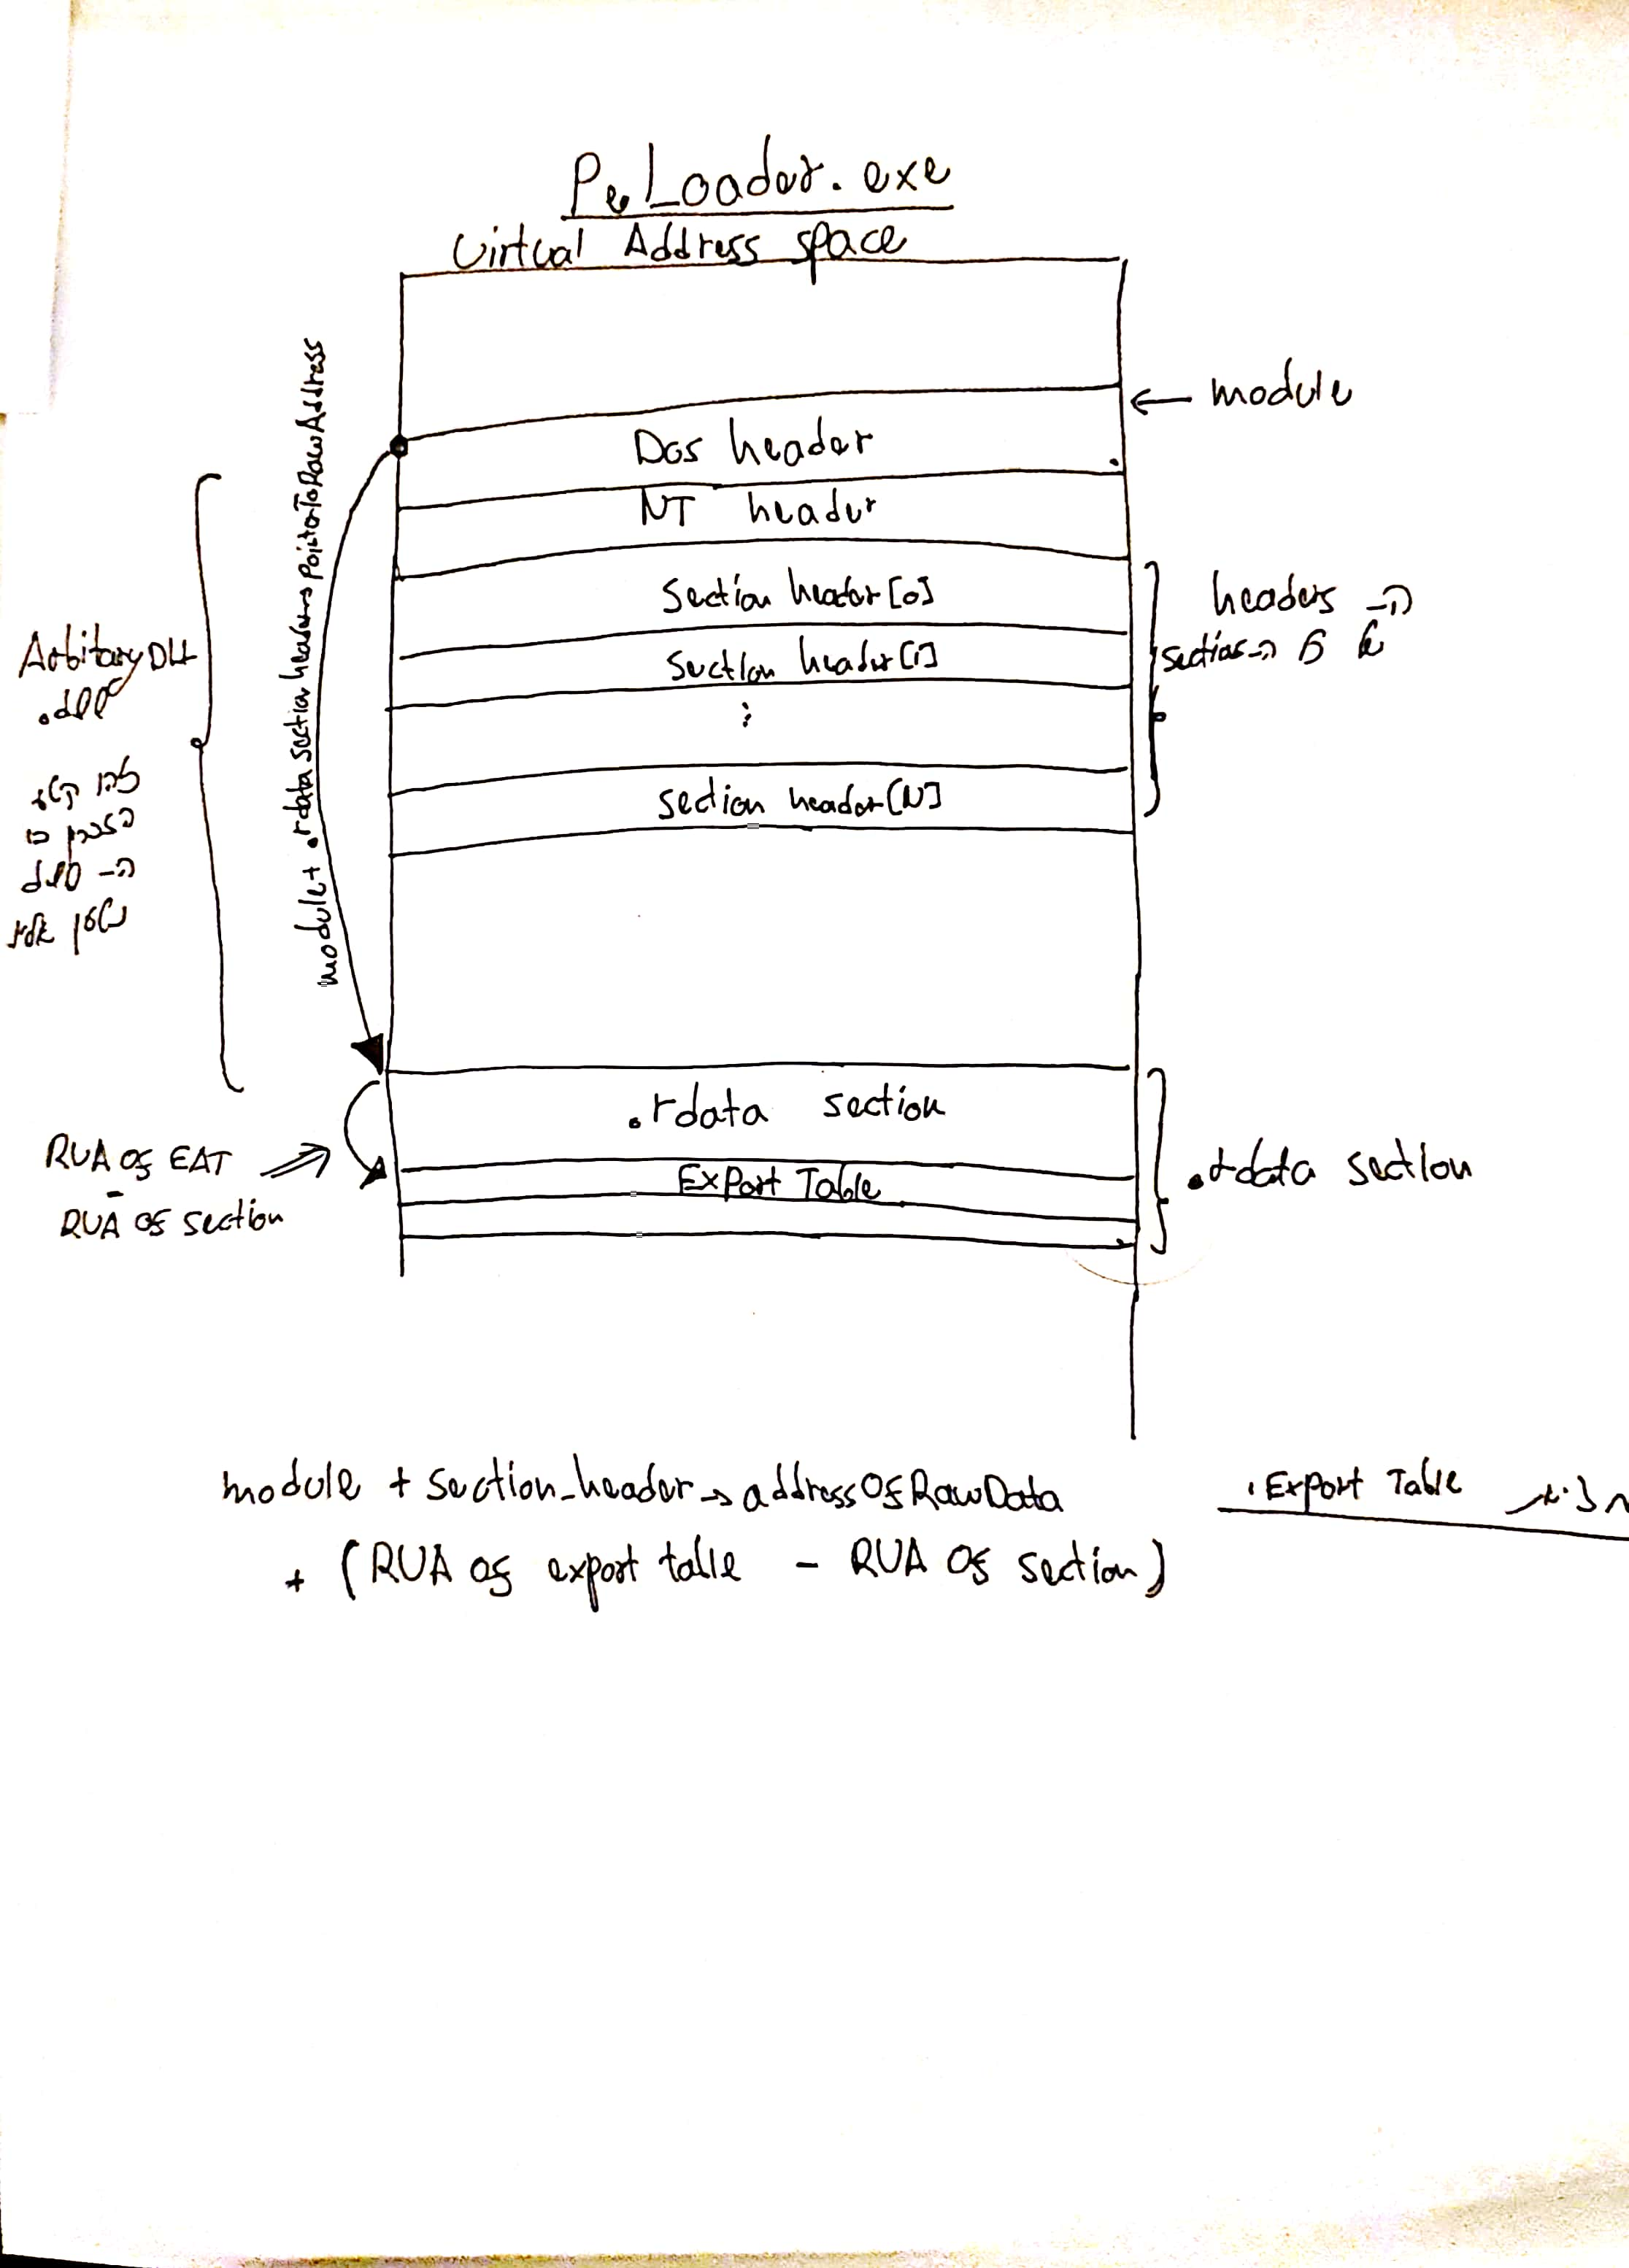 PeLoader.exe
Virtual Address space
← module
Dos header
NT header
section header[0]
section header[1]
:
section header[N]
headers ה-
של כל ה-sections
module + .rdata section header→PointerToRawAddress
Arbitary DLL
.dll
.rdata section
Export Table
.rdata section
RVA of EAT
-
RVA of section
module + section_header→addressOfRawData
+ (RVA of export table - RVA of section)
.Export Table